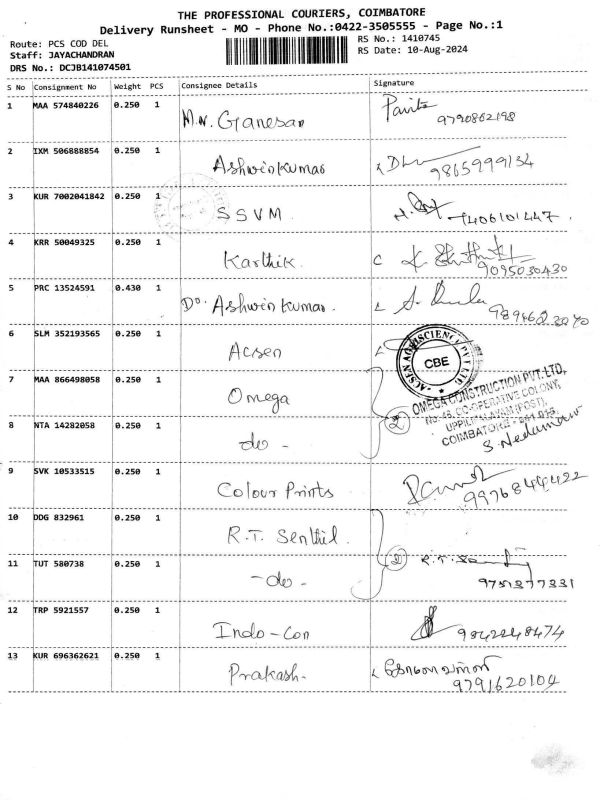 THE PROFESSIONAL COURIERS, COIMBATORE
Delivery Runsheet - MO - Phone No.:0422-3505555 - Page No.:1
Route: PCS COD DEL
RS No.: 1410745
Staff: JAYACHANDRAN
RS Date: 10-Aug-2024
DRS No.: DCJB141074501
S No Consignment No Weight PCS Consignee Details Signature
1 MAA 574840226 0.250 1 M.N. Ganesan
9790862198
2 IXM 506888854 0.250 1 Ashwin Kumar
9865999134
3 KUR 7002041842 0.250 1 SSVM
7406101447.
4 KRR 50049325 0.250 1 Karthik.
9095030430
5 PRC 13524591 0.430 1 Do. Ashwin Kumar.
6 SLM 352193565 0.250 1 Acsen
ACSEN AGRISCIENCY PVT LTD
CBE
7 MAA 866498058 0.250 1 Omega
OMEGA CONSTRUCTION PVT. LTD,
No: 46, CO-OPERATIVE COLONY,
UPPILIPALAYAM (POST),
COIMBATORE - 641 015.
8 NTA 14282058 0.250 1 - do - 2
9 SVK 10533515 0.250 1 Colour Prints
9976844422
10 DDG 832961 0.250 1 R.T. Senthil.
11 TUT 580738 0.250 1 - do - 2
9751377331
12 TRP 5921557 0.250 1 Indo-Con
9842248474
13 KUR 696362621 0.250 1 Prakash.
9791620104